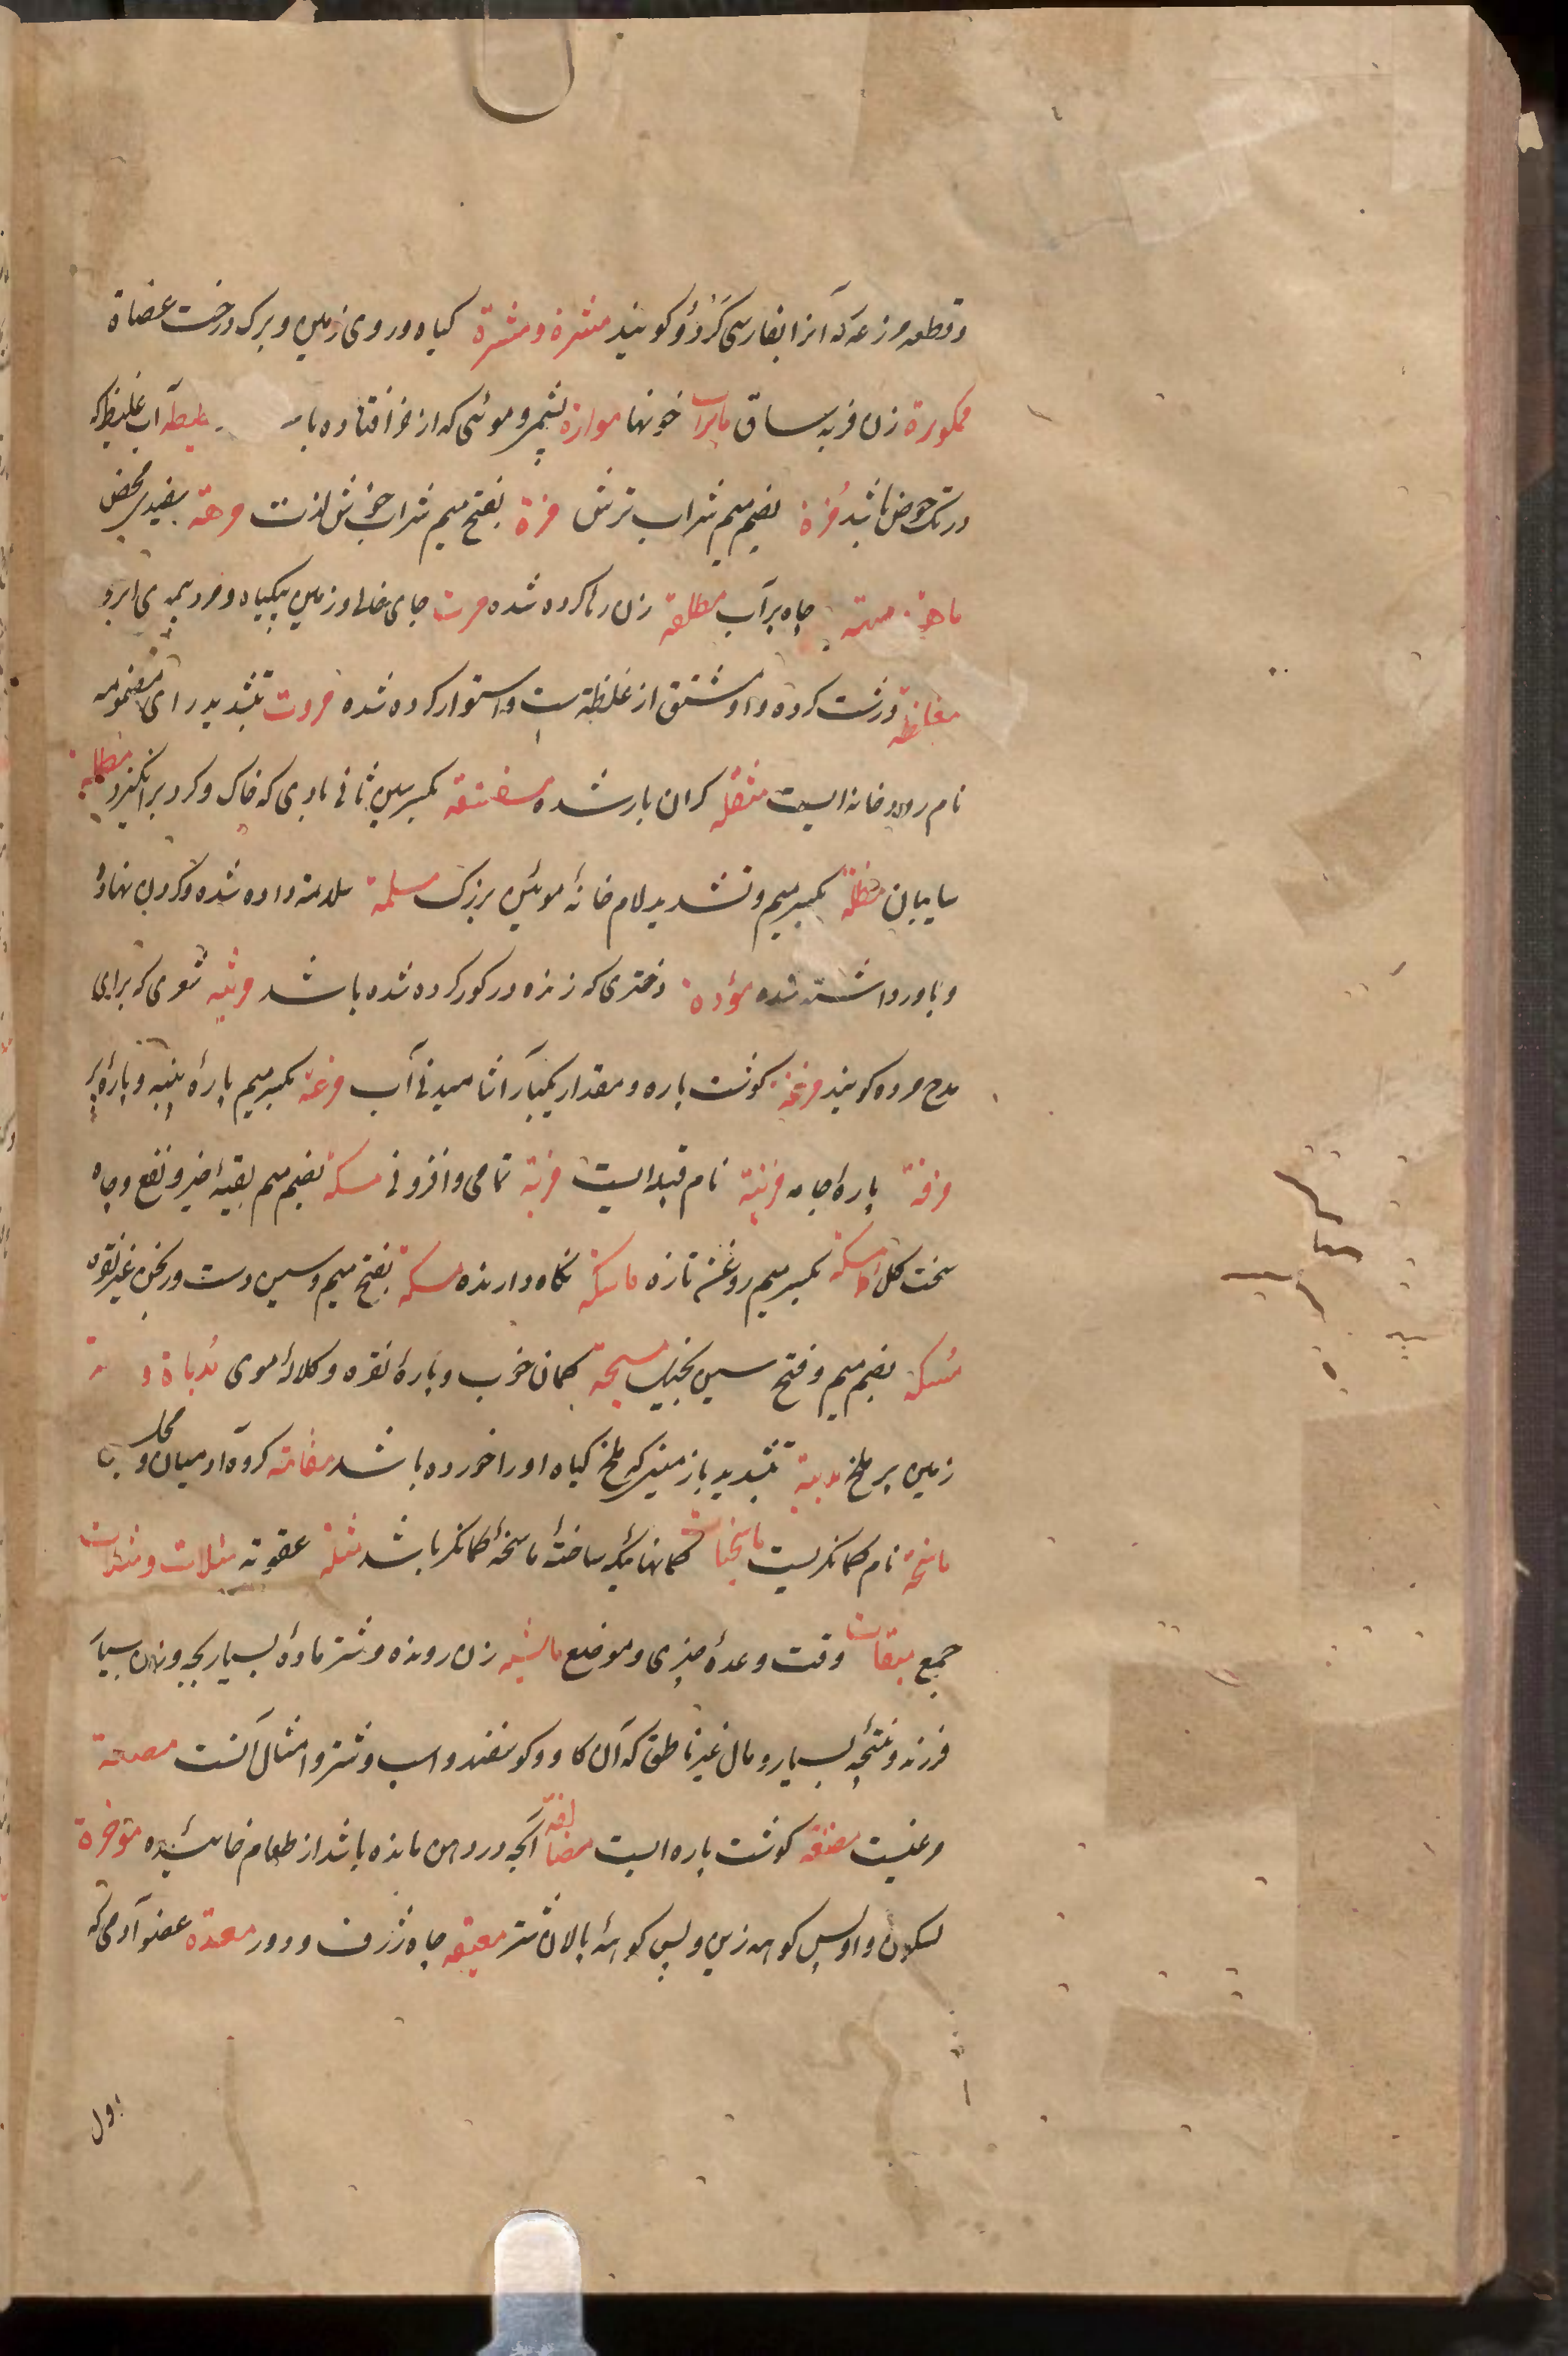 و قطعه مزرعه که آنرا بفارسی کَرْدُو کویند مشرة و مشرة کیاه و روی زمین و برک درخت عضاة
ممکورة زن فربه ساق مایرات خونها موارة پشم و موئی که از خر افتاده با مطیطه آب غلیظ که
در تک حوض باشد مُزة بضم میم شراب ترش مزة بفتح میم شراب خوش لذت مرهة سفیدی محض
ماهة میهة چاه پر آب مطلقة زن رها کرده شده مرت جای خالی و زمین بیکیاه و مرد بی ابرو
مغلظة درشت کرده و او مشتق از غلظة است و استوار کرده شده مروت بتشدید رای مضمومه
نام رودخانه ایست مثقله کران بار شده مسفسفة بکسر سین ثانی بادی که خاک و کرد برانکیزد مظلة
سایبان مظلة بکسر میم و تشدید لام خانهٔ موئین بزرک مسلمة سلامة داده شده و کردن نهاده
و باور داشته شده مؤدة دختری که زنده در کور کرده شده باشد مرثیه شعری که برای
مدح مرده کویند مزغة کوشت پاره و مقدار یکبار آشامیدنی آب مزعة بکسر میم پارهٔ پنبه و پارهٔ پر
مزقة پارهٔ جامه مزینة نام قبیله ایست مزیة تمامی و افزونی مسکة بضم میم بقیهٔ خیر و نفع و چاه
سخت کل مسکة بکسر میم روغن تازه ماسکة نکاه دارنده مسکة بفتح میم و سین دست ورنجن غیر نقره
مُسَکة بضم میم و فتح سین بخیل مسیحة کمان خوب و پارهٔ نقره و کلالهٔ موی مدباة و
زمین پر ملخ مدبیة بتشدید یا زمینی که ملخ کیاه او را خورده باشد مقامة کروه آدمیان و محل
ماسخة نام کمانکریست ماسخیات کمانهائیکه ساختهٔ ماسخهٔ کمانکر باشد مثلة عقوبه مثلات و مثلات
جمع میقات وقت وعدهٔ چیزی و موضع ماشیه زن رونده و شتر مادهٔ بسیار بچه و زن بسیار
فرزند و نتیجه بسیار و مال غیر ناطق که آن کاو و کوسفند و اسب و شتر و امثال آنست مصعة
مرغیست مضغة کوشت پاره ایست مضاغة آنچه در دهن مانده باشد از طعام خائیده مؤخرة
بسکون واو پس کوهه زین و پس کوههٔ پالان شتر معیقه چاه ژرف و دور معدة عضو آدمی که
اول